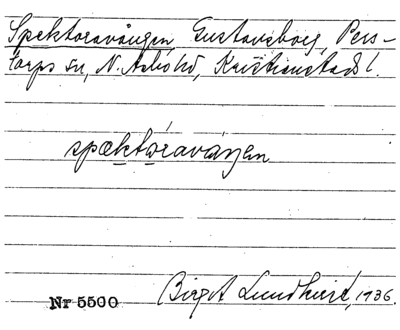 Spektoravången, Gustavsborg, Pers-
torps sn, N. Åsbo hd, Kristianstads l.
spæktóraváŋen
Nr 5500 Birgit Lundkvist, 1936.